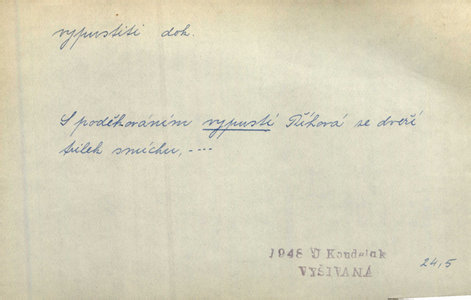 vypustiti dok.
S poděkováním vypustí Říhová se dveří
bílek smíchu, ....
1948 J Koudelak
VYŠIVANÁ
24,5